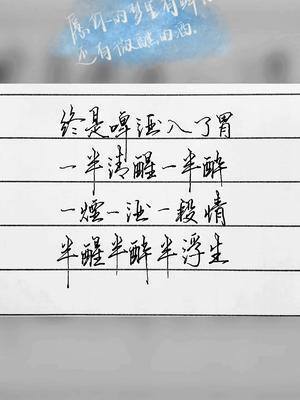 还有微醺的酒
终是啤酒入了胃
一半清醒一半醉
一烟一酒一段情
半醒半醉半浮生